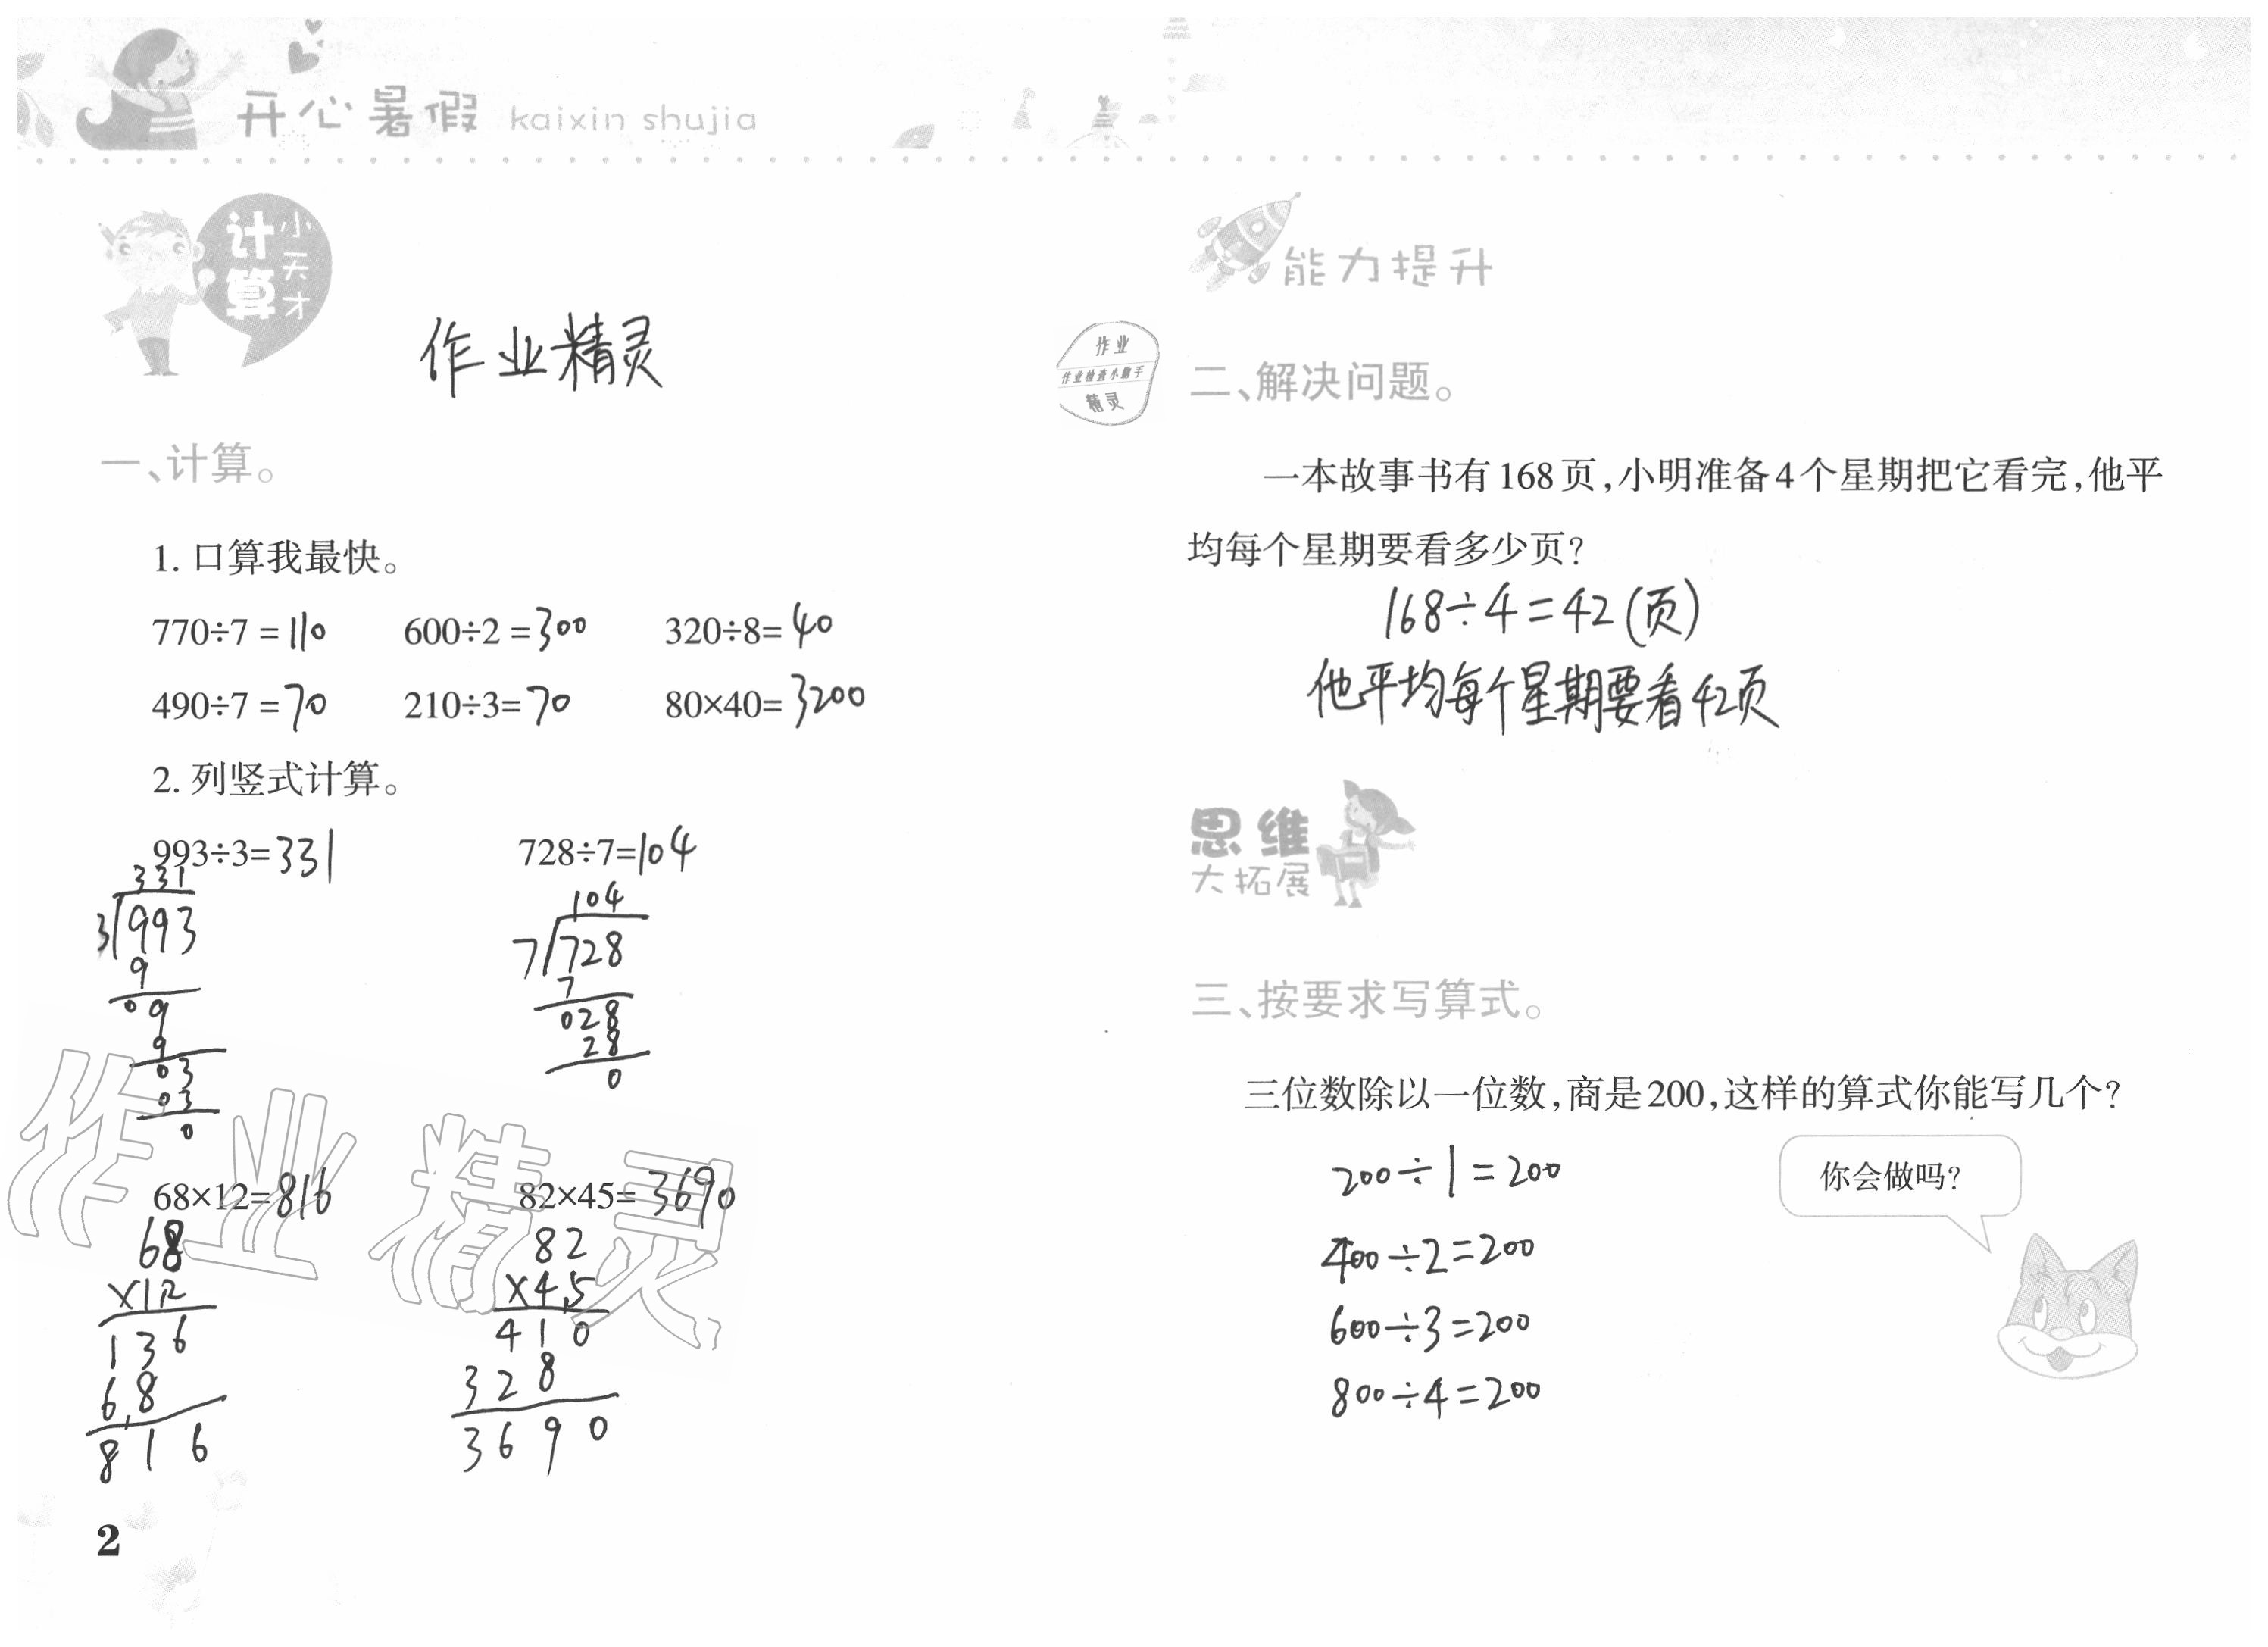 开心暑假 kaixin shujia
计算
小天才
作业精灵
一、计算。
1. 口算我最快。
770÷7=110 600÷2=300 320÷8=40
490÷7=70 210÷3=70 80×40=3200
2. 列竖式计算。
993÷3=331 728÷7=104
331
3 993
9
09
9
03
03
0
104
7 728
7
028
28
0
68×12=816 82×45=3690
68
×12
136
68
816
82
×45
410
328
3690
作业精灵
2
能力提升
作业
作业检查小助手
精灵
二、解决问题。
一本故事书有168页,小明准备4个星期把它看完,他平
均每个星期要看多少页?
168÷4=42(页)
他平均每个星期要看42页
思维
大拓展
三、按要求写算式。
三位数除以一位数,商是200,这样的算式你能写几个?
200÷1=200
400÷2=200
600÷3=200
800÷4=200
你会做吗?